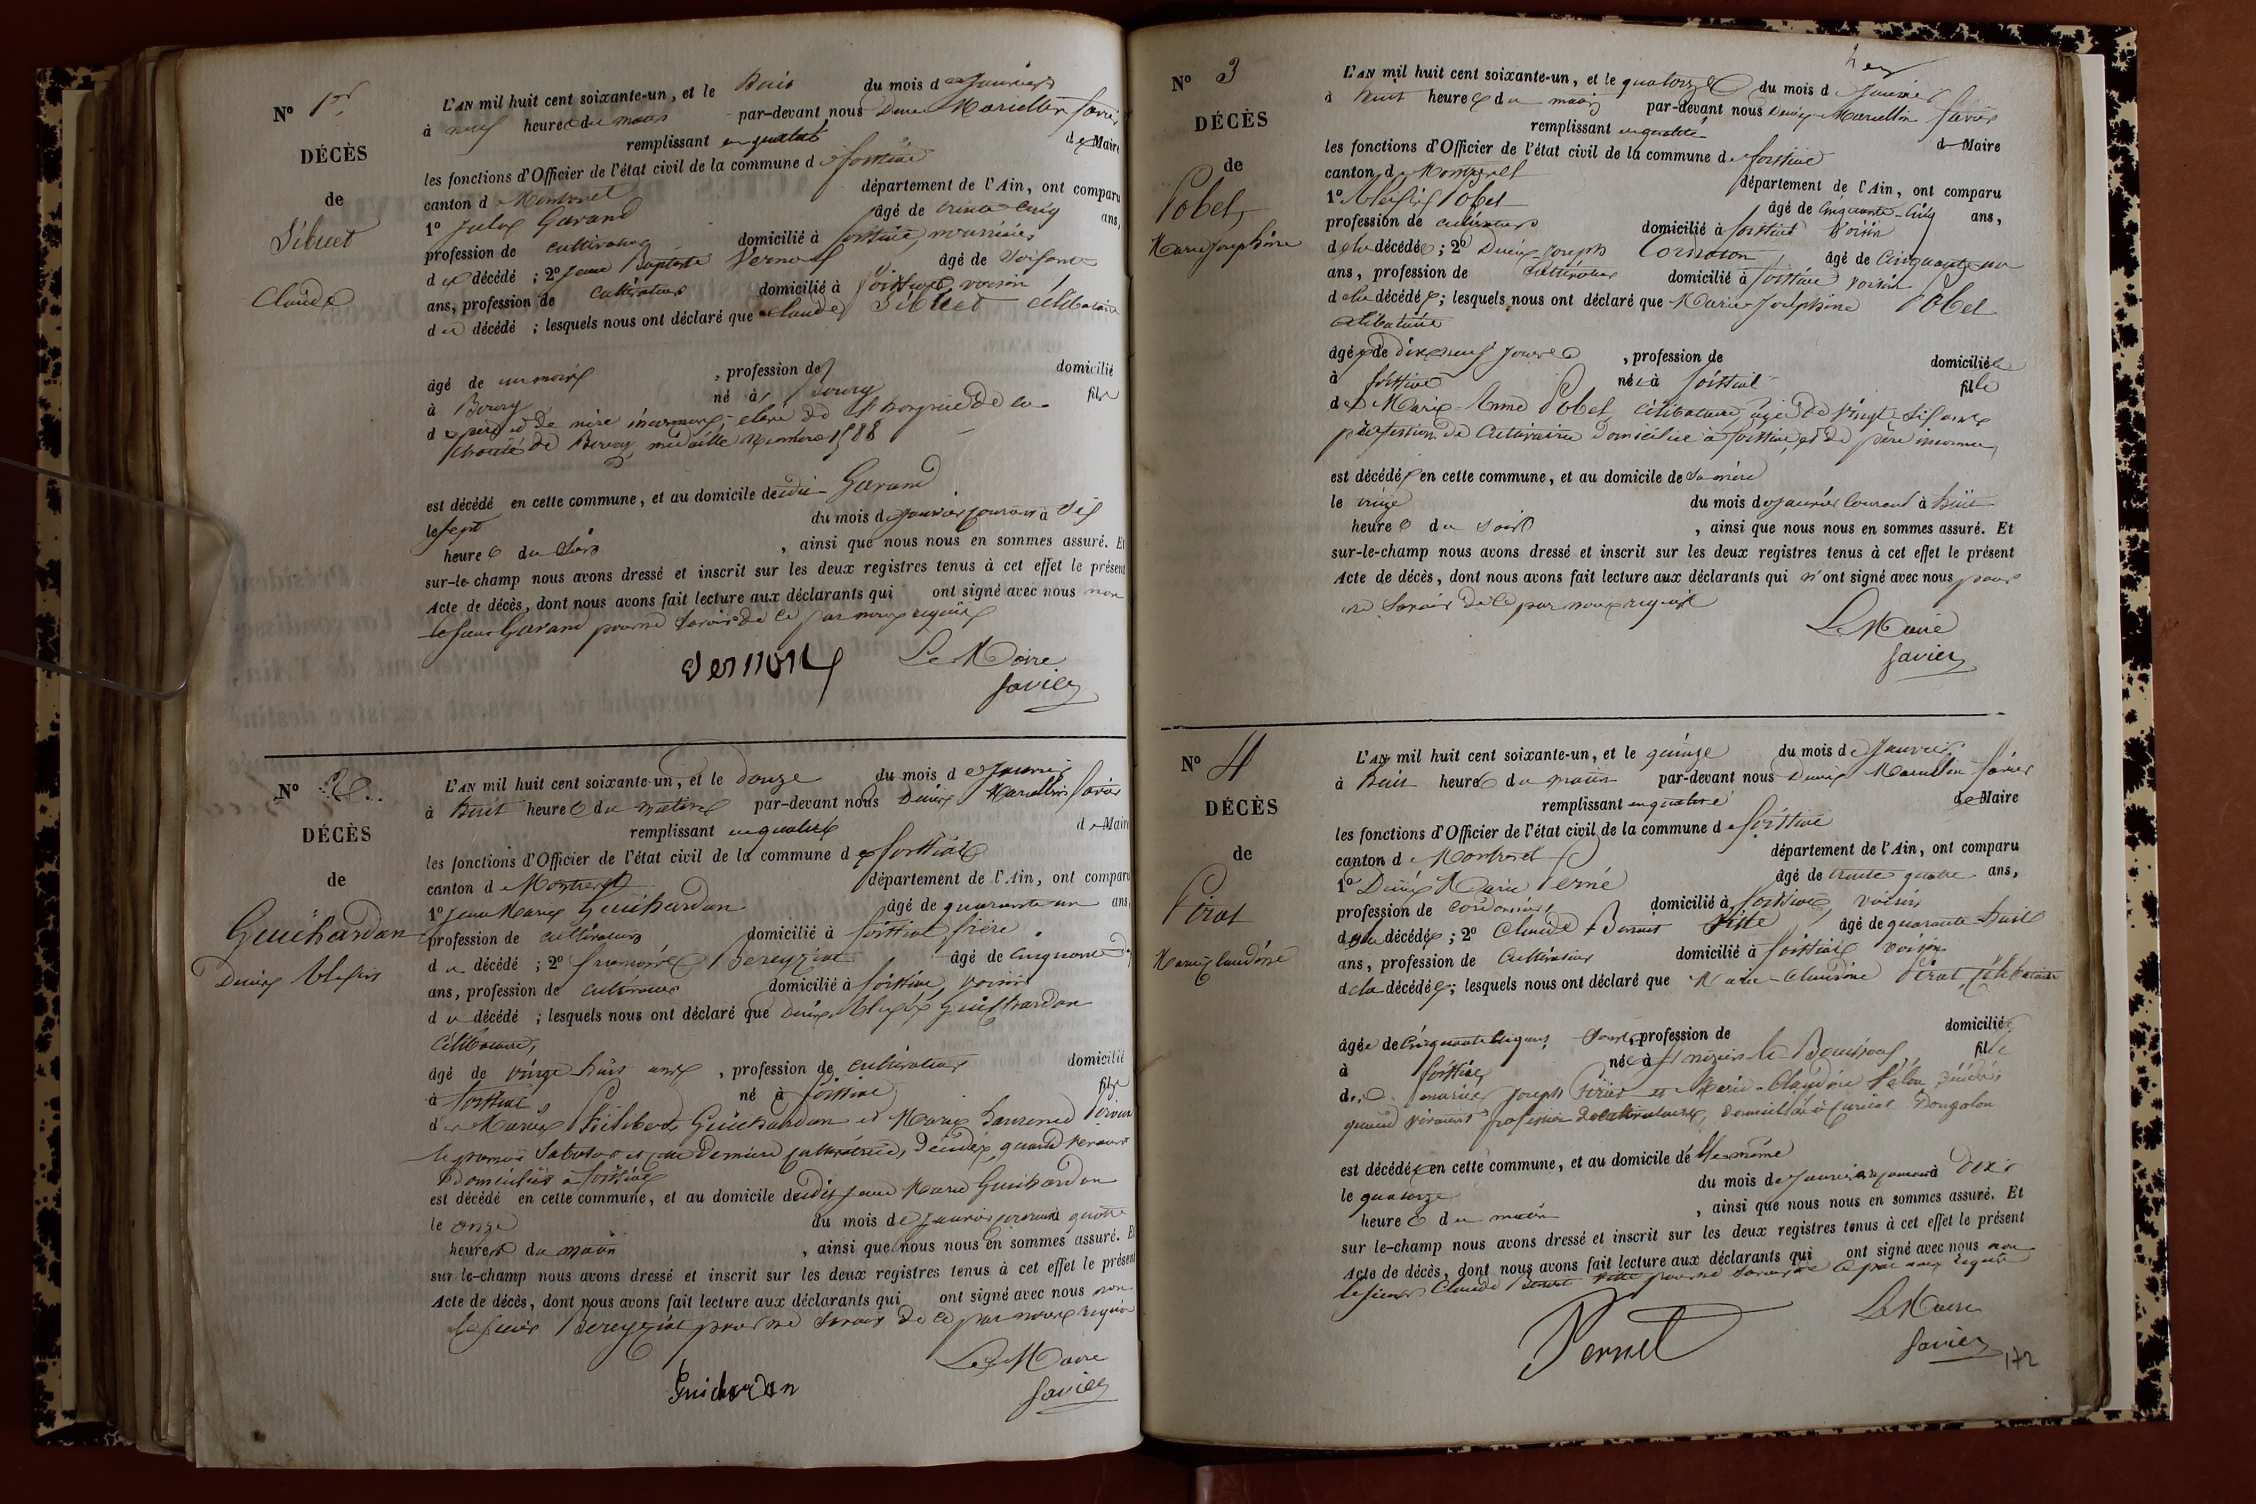 N° 1er
DÉCÈS
de
Sibuet
Claude
L'AN mil huit cent soixante-un, et le huit du mois de Janvier
à neuf heures du matin par-devant nous Denis Marcellin Favier
remplissant en qualité de Maire
les fonctions d'Officier de l'état civil de la commune de Foissiat
canton de Montrevel département de l'Ain, ont comparu
1° Julex Garand âgé de trente cinq ans,
profession de cultivateur domicilié à Foissiat, nourricier
du décédé ; 2° Jean Baptiste Vernoux âgé de soixante
ans, profession de cultivateur domicilié à Foissiat voisin
du décédé ; lesquels nous ont déclaré que Claude Sibuet célibataire
âgé de un mois , profession de domicilié
à Bourg né à Bourg fils
de père et de mère inconnus, élève de l'hospice de la
charité de Bourg, médaille numéro 1588
est décédé en cette commune, et au domicile dudit Garand
le sept du mois de Janvier courant à six
heures du soir , ainsi que nous nous en sommes assuré. Et
sur-le-champ nous avons dressé et inscrit sur les deux registres tenus à cet effet le présent
Acte de décès, dont nous avons fait lecture aux déclarants qui ont signé avec nous non
le sieur Garand pour ne savoir de ce par nous requis
Vernoux Le Maire
Favier
N° 2
DÉCÈS
de
Guichardan
Denis Alexis
L'AN mil huit cent soixante-un, et le douze du mois de Janvier
à huit heures du matin par-devant nous Denis Marcellin Favier
remplissant en qualité de Maire
les fonctions d'Officier de l'état civil de la commune de Foissiat
canton de Montrevel département de l'Ain, ont comparu
1° Jean Marie Guichardan âgé de quarante un ans,
profession de cultivateur domicilié à Foissiat frère
du décédé ; 2° Bereyziat âgé de cinquante
ans, profession de cultivateur domicilié à Foissiat, voisin
du décédé ; lesquels nous ont déclaré que Denis Alexis Guichardan
célibataire,
âgé de vingt huit ans , profession de cultivateur domicilié
à Foissiat né à Foissiat fils
de Marie Philibert Guichardan et Marie Laurence
le premier sabotier et la dernière cultivatrice, décédés, quand vivaient
domiciliés à Foissiat
est décédé en cette commune, et au domicile dudit Jean Marie Guichardan
le onze du mois de Janvier courant à quatre
heures du matin , ainsi que nous nous en sommes assuré. Et
sur le-champ nous avons dressé et inscrit sur les deux registres tenus à cet effet le présent
Acte de décès, dont nous avons fait lecture aux déclarants qui ont signé avec nous non
le sieur Bereyziat pour ne savoir de ce par nous requis
Le Maire
Guichardan Favier
N° 3
DÉCÈS
de
Pobel
Marie Josephine
L'AN mil huit cent soixante-un, et le quatorze du mois de Janvier
à huit heures du matin par-devant nous Denis Marcellin Favier
remplissant en qualité de Maire
les fonctions d'Officier de l'état civil de la commune de Foissiat
canton de Montrevel département de l'Ain, ont comparu
1° Alexis Pobel âgé de cinquante-cinq ans,
profession de cultivateur domicilié à Foissiat voisin
de la décédée ; 2° Denis Joseph Cornaton, âgé de cinquante un
ans, profession de cultivateur domicilié à Foissiat voisin
de la décédée ; lesquels nous ont déclaré que Marie Joséphine Pobel
célibataire
âgée de dix neuf jours , profession de domiciliée
à Foissiat née à Foissiat fille
de Marie-Anne Pobel, célibataire, âgée de vingt six ans
profession de cultivatrice domiciliée à Foissiat, et de père inconnu,
est décédée en cette commune, et au domicile de sa mère
le treize du mois de Janvier courant à huit
heures du soir , ainsi que nous nous en sommes assuré. Et
sur-le-champ nous avons dressé et inscrit sur les deux registres tenus à cet effet le présent
Acte de décès, dont nous avons fait lecture aux déclarants qui n'ont signé avec nous pour
ne savoir de ce par nous requis
Le Maire
Favier
N° 4
DÉCÈS
de
Pirat
Marie Claudine
L'AN mil huit cent soixante-un, et le quinze du mois de Janvier
à huit heures du matin par-devant nous Denis Marcellin Favier
remplissant en qualité de Maire
les fonctions d'Officier de l'état civil de la commune de Foissiat
canton de Montrevel département de l'Ain, ont comparu
1° Denis Marie Pernet âgé de trente quatre ans,
profession de cordonnier domicilié à Foissiat, voisin
de la décédée ; 2° Claude Benoit Pitte, âgé de quarante huit
ans, profession de cultivateur domicilié à Foissiat voisin
de la décédée ; lesquels nous ont déclaré que Marie-Claudine Pirat, célibataire
âgée de cinquante cinq ans , profession de domiciliée
à Foissiat née à St Nizier le Bouchoux, fille
de Joseph Pirat et Marie-Claudine décédés
quand vivaient profession de cultivateurs, domiciliés à Curciat Dongalon
est décédée en cette commune, et au domicile d'elle même
le quatorze du mois de Janvier courant à dix
heures du matin , ainsi que nous nous en sommes assuré. Et
sur le-champ nous avons dressé et inscrit sur les deux registres tenus à cet effet le présent
Acte de décès, dont nous avons fait lecture aux déclarants qui ont signé avec nous non
le sieur Claude Benoit Pitte pour ne savoir de ce par nous requis
Le Maire
Pernet Favier
172